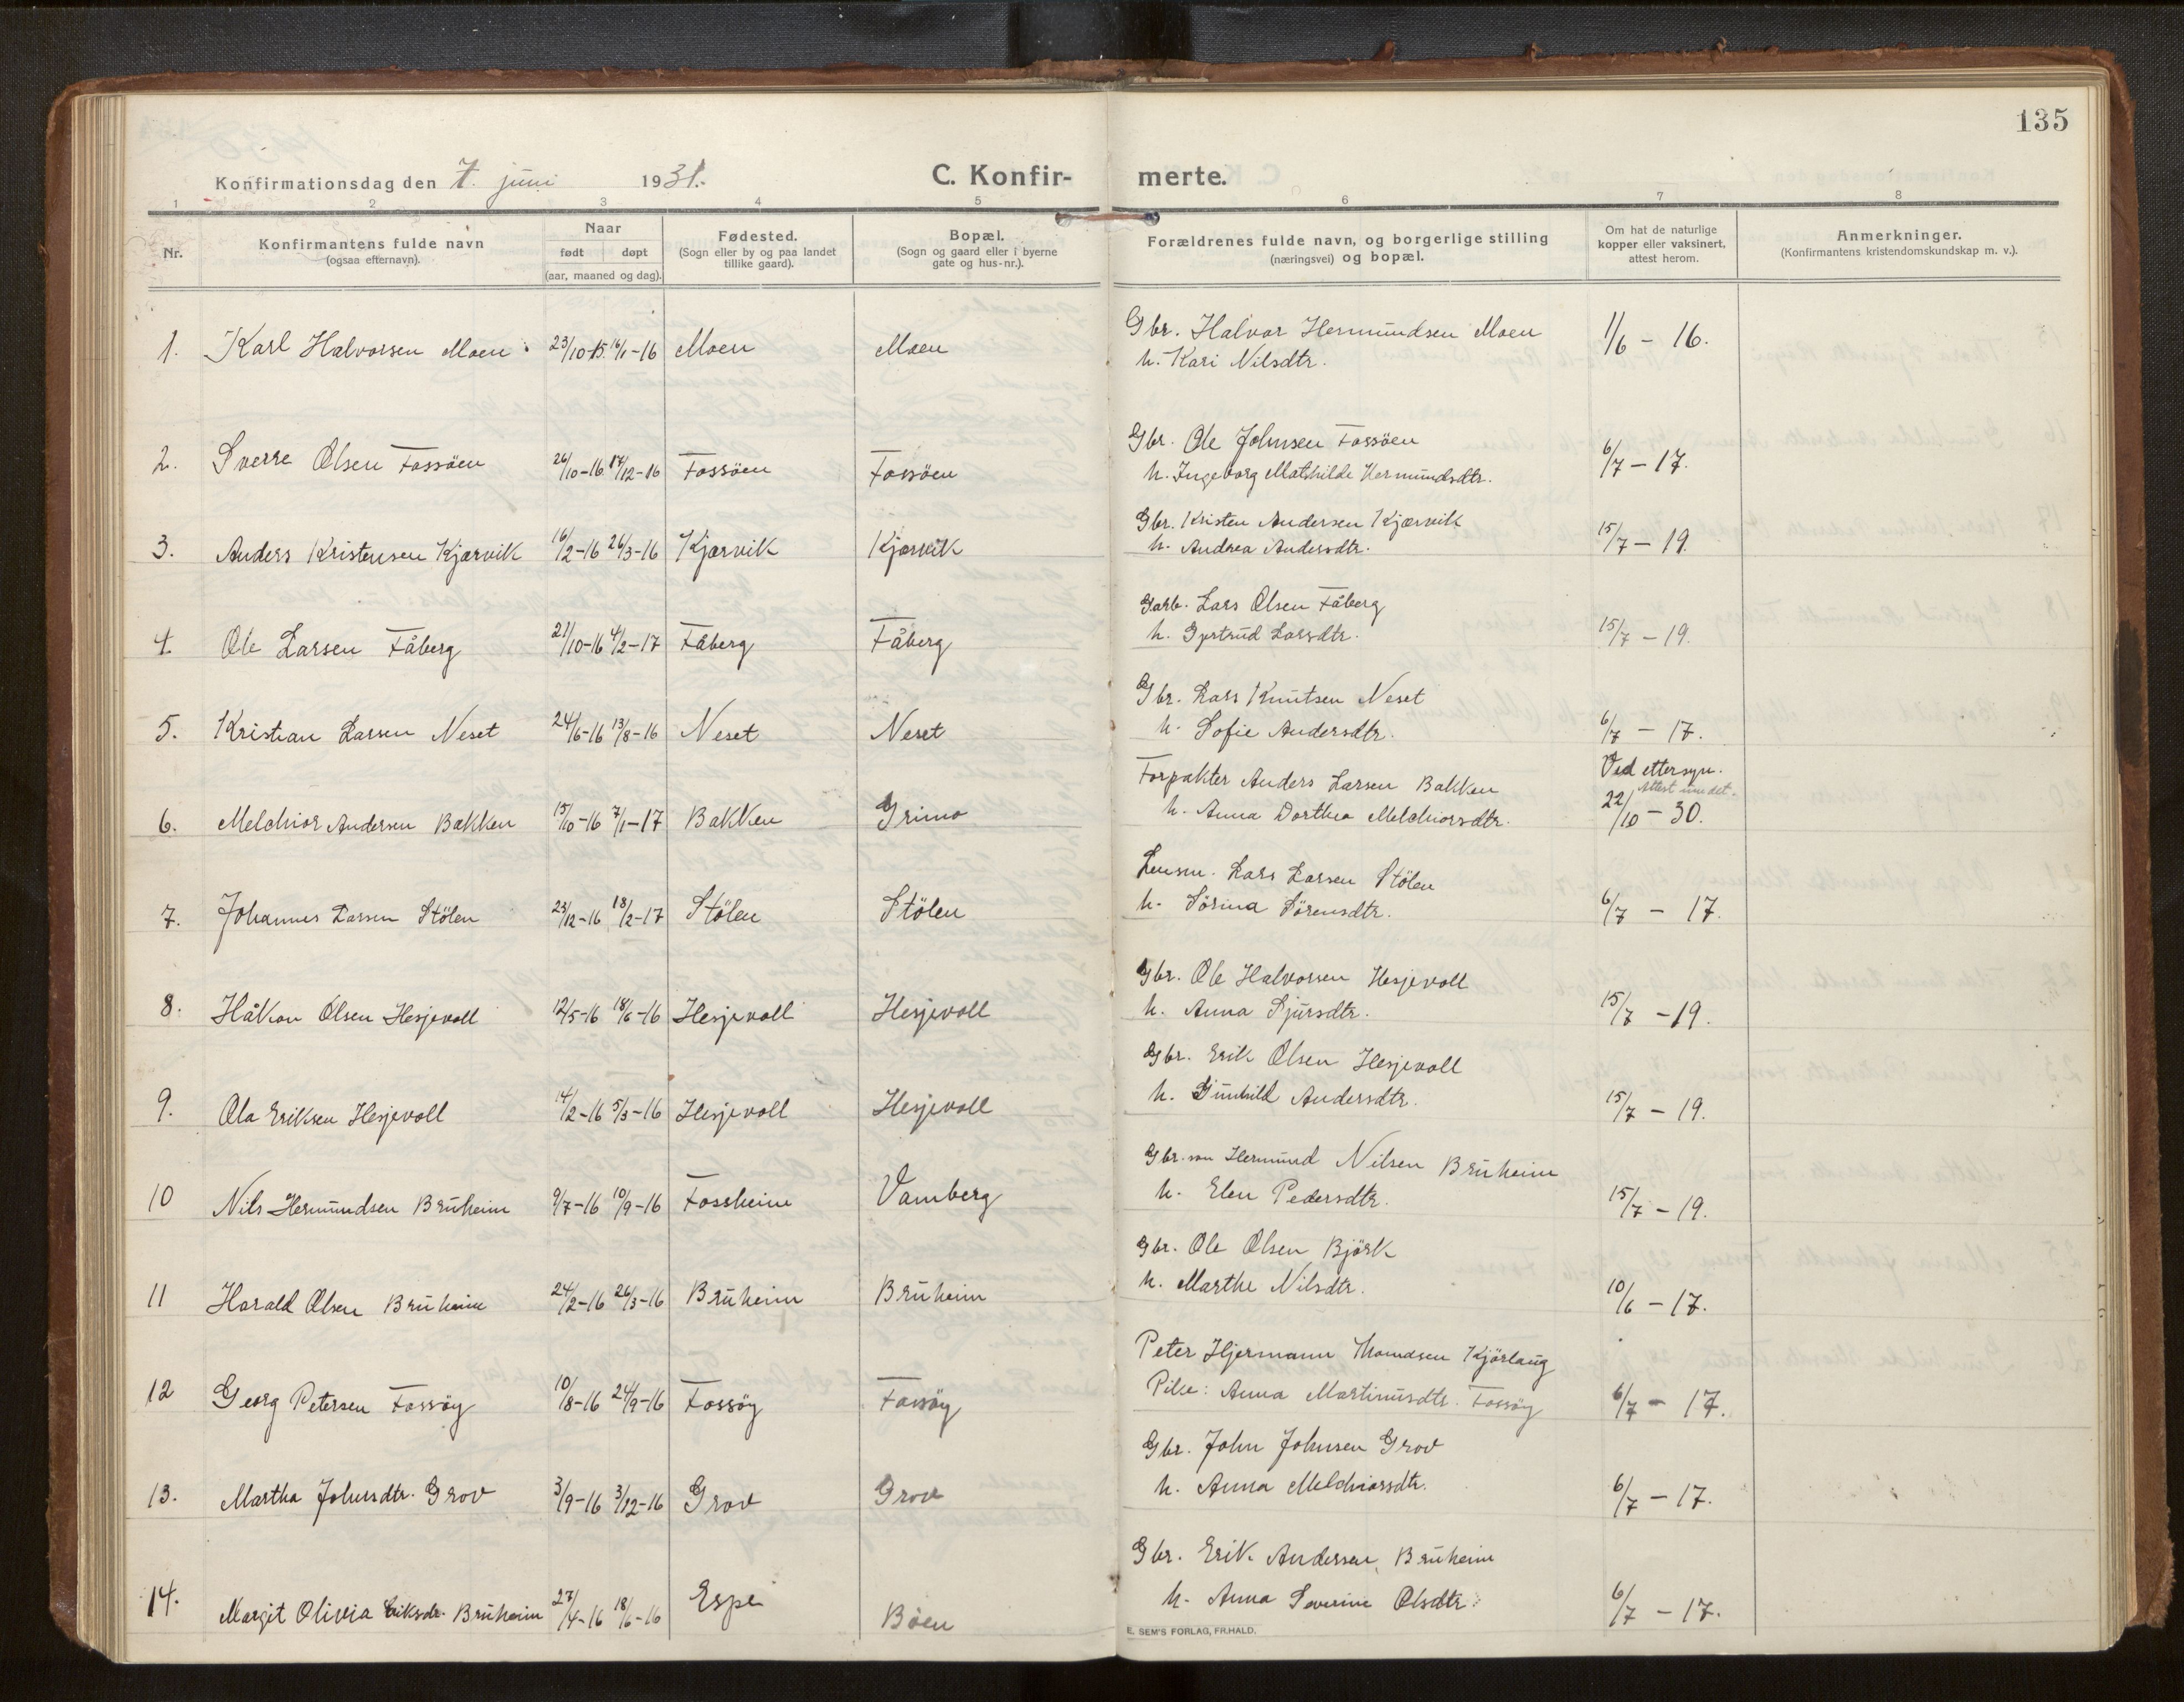 135
Konfirmationsdag den 7. juni 1931.
C. Konfirmerte.
1 2 3 4 5 6 7 8
Nr.
Konfirmantens fulde navn
(ogsaa efternavn).
Naar
født døpt
(aar, maaned og dag).
Fødested.
(Sogn eller by og paa landet
tillike gaard).
Bopæl.
(Sogn og gaard eller i byerne
gate og hus-nr.).
Forældrenes fulde navn, og borgerlige stilling
(næringsvei) og bopæl.
Om hat de naturlige
kopper eller vaksinert,
attest herom.
Anmerkninger.
(Konfirmantens kristendomskundskap m. v.).
1. Karl Halvorsen Moen 23/10-15. 16/1-16 Moen Moen
Gbr. Halvor Hermundsen Moen
h. Kari Nilsdtr.
11/6 - 16.
2. Sverre Olsen Fossöen 26/10-16 17/12-16 Fossöen Fossöen
Gbr. Ole Johnsen Fossöen
h. Ingeborg Mathilde Hermundsdtr.
6/7 - 17.
3. Anders Kristensen Kjærvik 16/2-16 26/3-16 Kjærvik Kjærvik
Gbr. Kristen Andersen Kjærvik
h. Andrea Andersdtr.
15/7 - 19.
4. Ole Larsen Fåberg 21/10-16 4/2-17 Fåberg Fåberg
Garb. Lars Olsen Fåberg
h. Gjertrud Larsdtr.
15/7 - 19.
5. Kristian Larsen Neset 24/6-16 13/8-16 Neset Neset
Gbr. Lars Knutsen Neset
h. Sofie Andersdtr.
6/7 - 17.
6. Melchior Andersen Bakken 15/10-16 7/1-17 Bakken Grimo
Forpakter Anders Larsen Bakken
h. Anna Dorthea Melchiorsdtr.
Ved ettersyn.
22/10 - 30.
7. Johannes Larsen Stölen 23/12-16 18/2-17 Stölen Stölen
Lensm. Lars Larsen Stölen
h. Sörina Sörensdtr.
6/7 - 17.
8. Håkon Olsen Hesjevoll 12/5-16 18/6-16 Hesjevoll Hesjevoll
Gbr. Ole Halvorsen Hesjevoll
h. Anna Sjursdtr.
15/7 - 19.
9. Ola Eriksen Hesjevoll 14/2-16 5/3-16 Hesjevoll Hesjevoll
Gbr. Erik Olsen Hesjevoll
h. Gunhild Andersdtr.
15/7 - 19.
10 Nils Hermundsen Bruheim 9/7-16 10/9-16 Fossheim Vamberg
Gbr. søn Hermund Nilsen Bruheim
h. Elen Pedersdtr.
15/7 - 19.
11 Harald Olsen Bruheim 24/2-16 26/3-16 Bruheim Bruheim
Gbr. Ole Olsen Björk
h. Marthe Nilsdtr.
10/6 - 17.
12 Georg Petersen Fossöy 10/8-16 24/9-16 Fossöy Fossöy
Peter Hjermann Thomasen Kjörlaug
Pike: Anna Martinusdtr. Fossöy
6/7 - 17.
13. Martha Johnsdtr. Grov 3/9-16 3/12-16 Grov Grov
Gbr. John Johnsen Grov
h. Anna Melchiorsdtr.
6/7 - 17.
14. Margit Olivia Eriksdr. Bruheim 27/4-16 18/6-16 Espe Böen
Gbr. Erik Andersen Bruheim
h. Anna Severine Olsdtr.
6/7 - 17.
E. SEM'S FORLAG, FR.HALD.